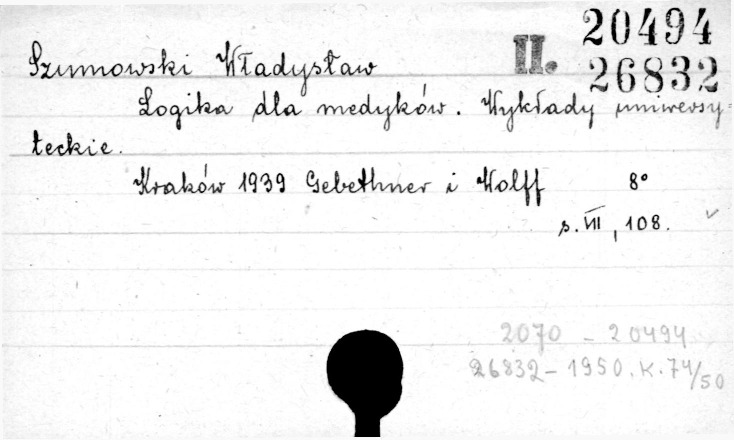 20494
Szumowski Władysław II. 26832
Logika dla medyków. Wykłady uniwersy-
teckie.
Kraków 1939 Gebethner i Wolff 8°
s. VII, 108. ✓
2070 - 20494
26832 - 1950. K. 74/50